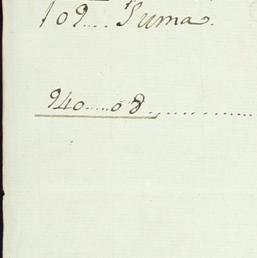 109.... Suma.
940.....08............